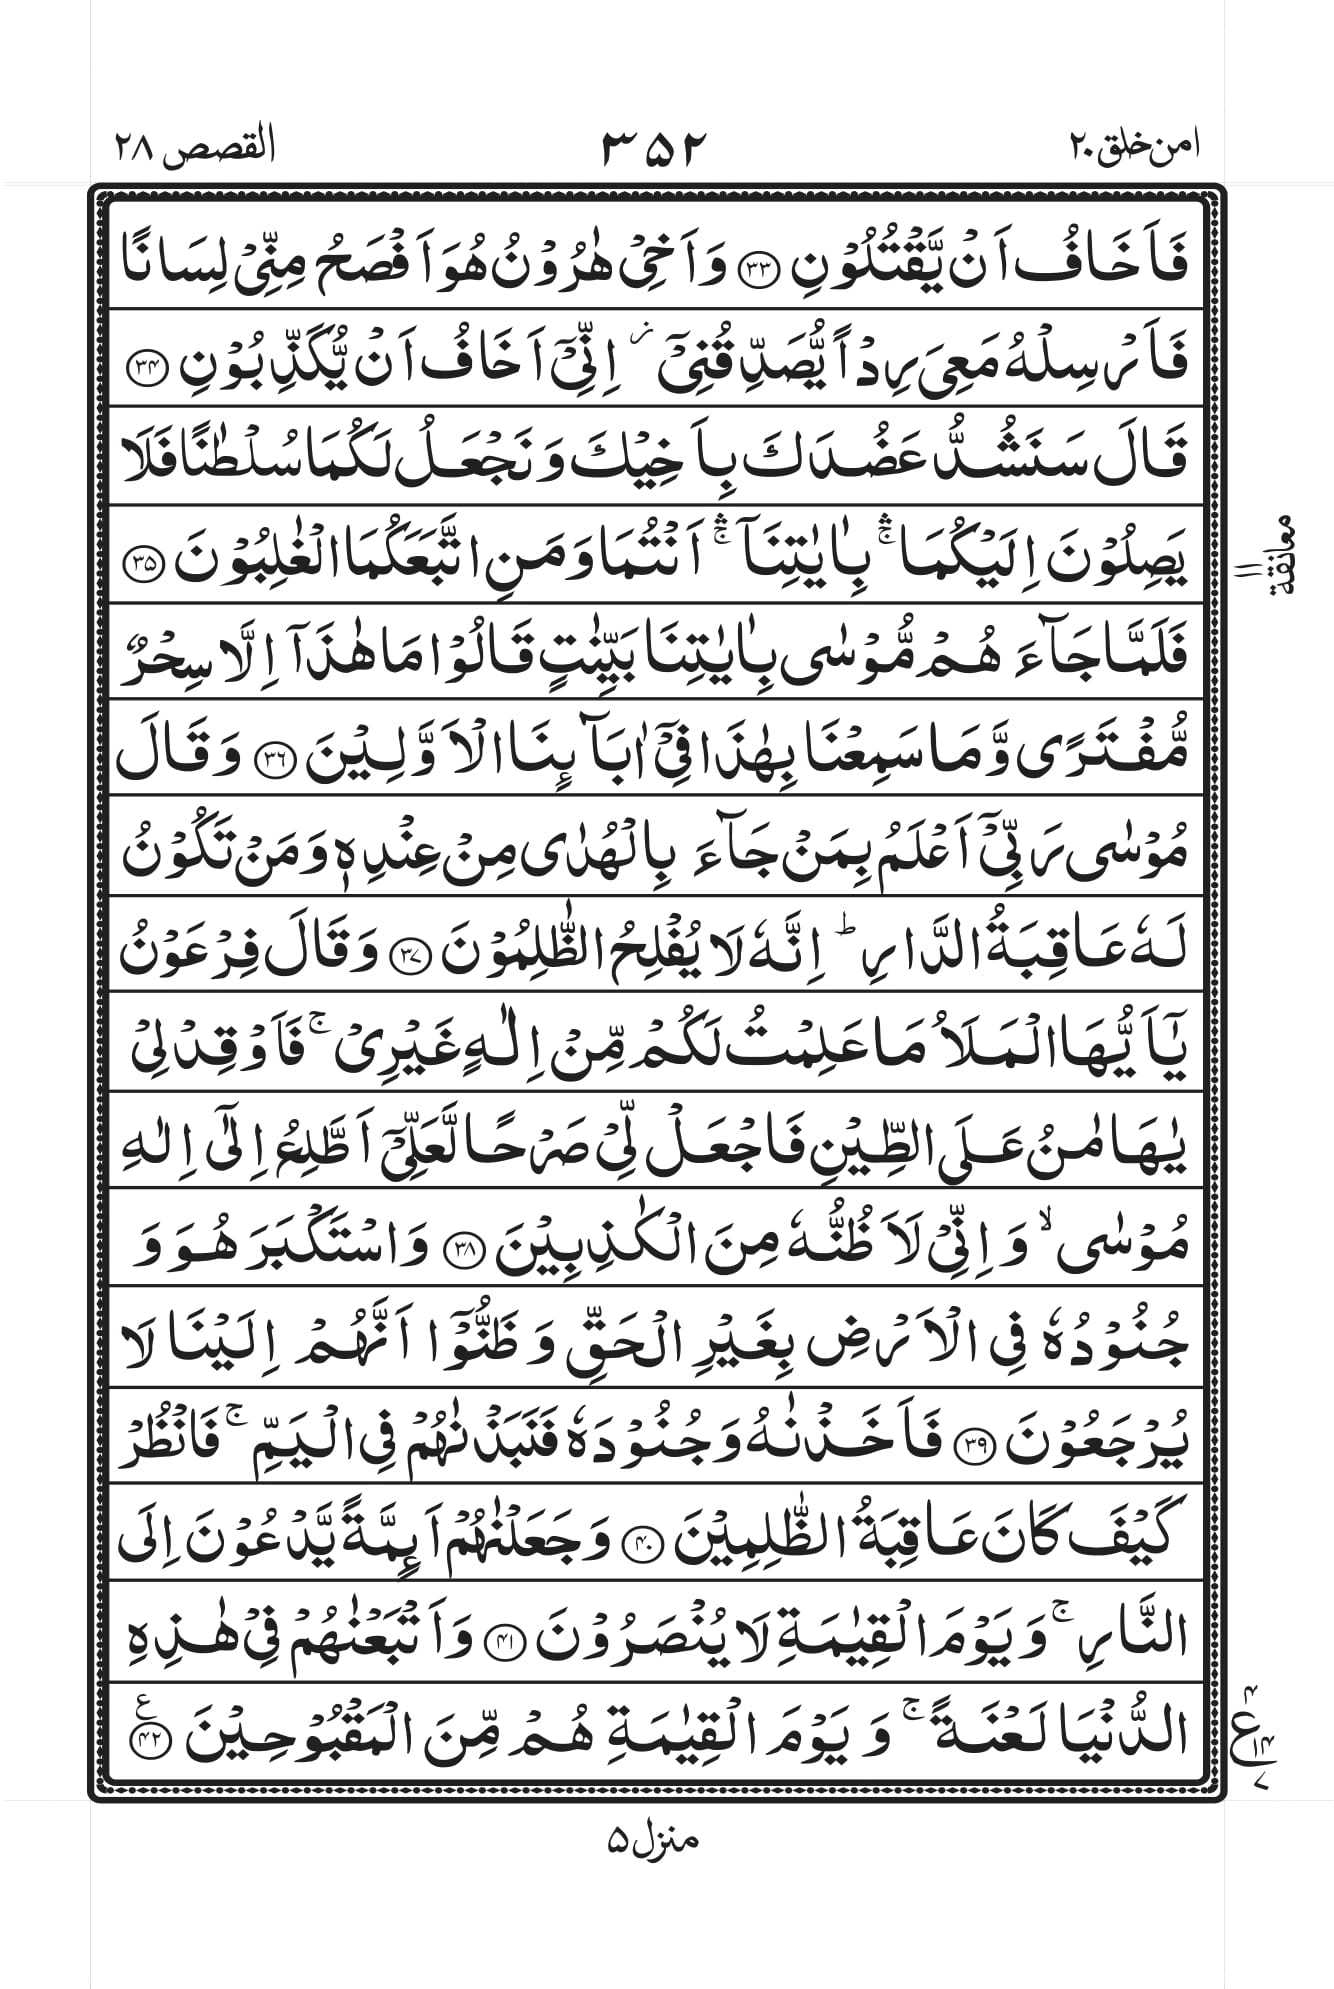 امن خلق ٢٠
٣٥٢
القصص ٢٨
فَاَخَافُ اَنۡ يَّقۡتُلُوۡنِ ﴿٣٣﴾ وَاَخِىۡ هٰرُوۡنُ هُوَ اَفۡصَحُ مِنِّىۡ لِسَانًا
فَاَرۡسِلۡهُ مَعِىَ رِدۡاً يُّصَدِّقُنِىۡٓ ز اِنِّىۡٓ اَخَافُ اَنۡ يُّكَذِّبُوۡنِ ﴿٣٤﴾
قَالَ سَنَشُدُّ عَضُدَكَ بِاَخِيۡكَ وَنَجۡعَلُ لَكُمَا سُلۡطٰنًا فَلَا
يَصِلُوۡنَ اِلَيۡكُمَا ۛۚ بِاٰيٰتِنَاۤ ۛۚ اَنۡتُمَا وَمَنِ اتَّبَعَكُمَا الۡغٰلِبُوۡنَ ﴿٣٥﴾
معانقة
١١
فَلَمَّا جَآءَهُمۡ مُّوۡسٰى بِاٰيٰتِنَا بَيِّنٰتٍ قَالُوۡا مَا هٰذَاۤ اِلَّا سِحۡرٌ
مُّفۡتَرًى وَّمَا سَمِعۡنَا بِهٰذَا فِىۡۤ اٰبَآئِنَا الۡاَوَّلِيۡنَ ﴿٣٦﴾ وَقَالَ
مُوۡسٰى رَبِّىۡۤ اَعۡلَمُ بِمَنۡ جَآءَ بِالۡهُدٰى مِنۡ عِنۡدِهٖ وَمَنۡ تَكُوۡنُ
لَهٗ عَاقِبَةُ الدَّارِ ؕ اِنَّهٗ لَا يُفۡلِحُ الظّٰلِمُوۡنَ ﴿٣٧﴾ وَقَالَ فِرۡعَوۡنُ
يٰۤاَيُّهَا الۡمَلَاُ مَا عَلِمۡتُ لَكُمۡ مِّنۡ اِلٰهٍ غَيۡرِىۡ ۚ فَاَوۡقِدۡ لِىۡ
يٰهَامٰنُ عَلَى الطِّيۡنِ فَاجۡعَلۡ لِّىۡ صَرۡحًا لَّعَلِّىۡۤ اَطَّلِعُ اِلٰٓى اِلٰهِ
مُوۡسٰى ۙ وَاِنِّىۡ لَاَظُنُّهٗ مِنَ الۡكٰذِبِيۡنَ ﴿٣٨﴾ وَاسۡتَكۡبَرَ هُوَ وَ
جُنُوۡدُهٗ فِى الۡاَرۡضِ بِغَيۡرِ الۡحَقِّ وَظَنُّوۡۤا اَنَّهُمۡ اِلَيۡنَا لَا
يُرۡجَعُوۡنَ ﴿٣٩﴾ فَاَخَذۡنٰهُ وَجُنُوۡدَهٗ فَنَبَذۡنٰهُمۡ فِى الۡيَمِّ ۚ فَانْظُرۡ
كَيۡفَ كَانَ عَاقِبَةُ الظّٰلِمِيۡنَ ﴿٤٠﴾ وَجَعَلۡنٰهُمۡ اَئِمَّةً يَّدۡعُوۡنَ اِلَى
النَّارِ ۚ وَيَوۡمَ الۡقِيٰمَةِ لَا يُنۡصَرُوۡنَ ﴿٤١﴾ وَاَتۡبَعۡنٰهُمۡ فِىۡ هٰذِهِ
الدُّنۡيَا لَعۡنَةً ۚ وَيَوۡمَ الۡقِيٰمَةِ هُمۡ مِّنَ الۡمَقۡبُوۡحِيۡنَ ﴿٤٢﴾ ع
٤
ع ١٤
٧
منزل ٥